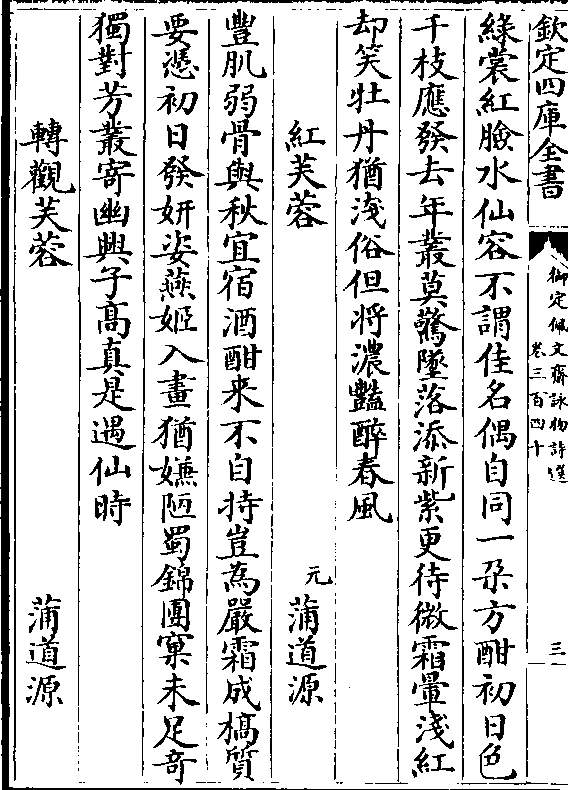 欽定四庫全書
御定佩文齋詠物詩選
卷三百四十
三
綠裳紅臉水仙容不謂佳名偶自同一朶方酣初日色
千枝應發去年叢莫驚墜落添新紫更待微霜暈淺紅
却笑牡丹猶淺俗但将濃豔醉春風
紅芙蓉
元
蒲道源
豐肌弱骨與秋宜宿酒酣来不自持豈為嚴霜成槁質
要憑初日發妍姿燕姬入畫猶嫌陋蜀錦團窠未足奇
獨對芳叢寄幽興子髙真是遇仙時
轉觀芙蓉
蒲道源